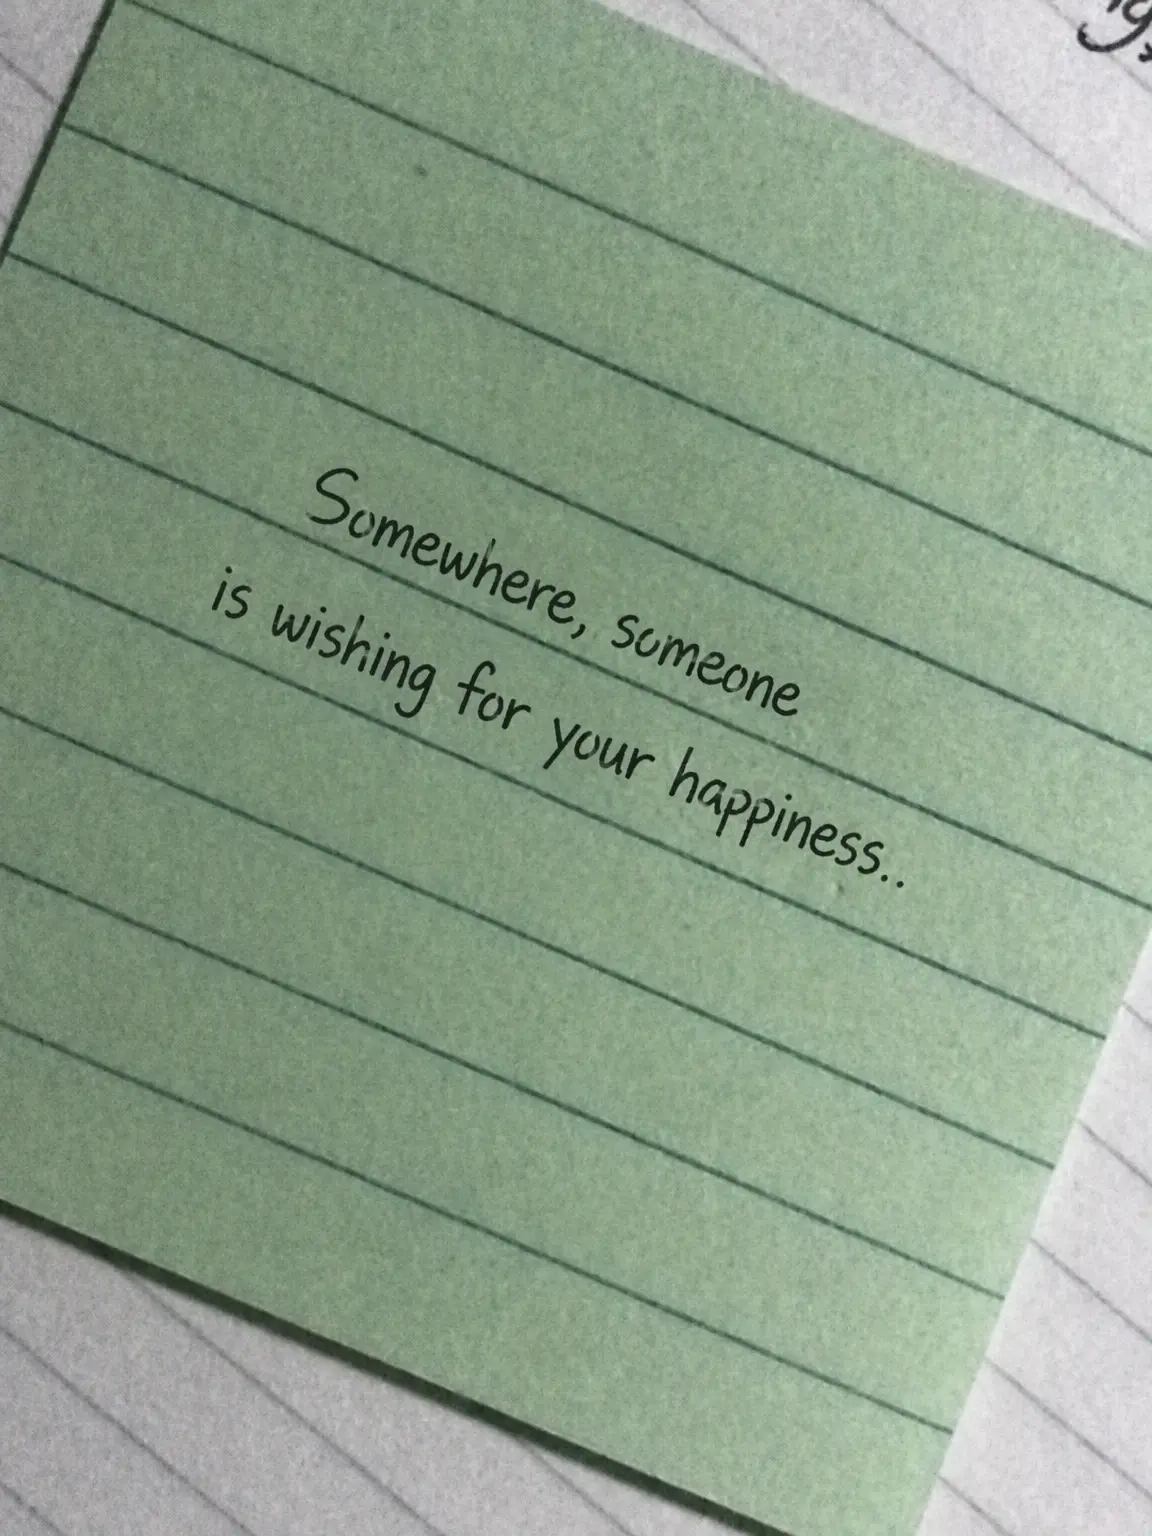 Somewhere, someone
is wishing for your happiness..